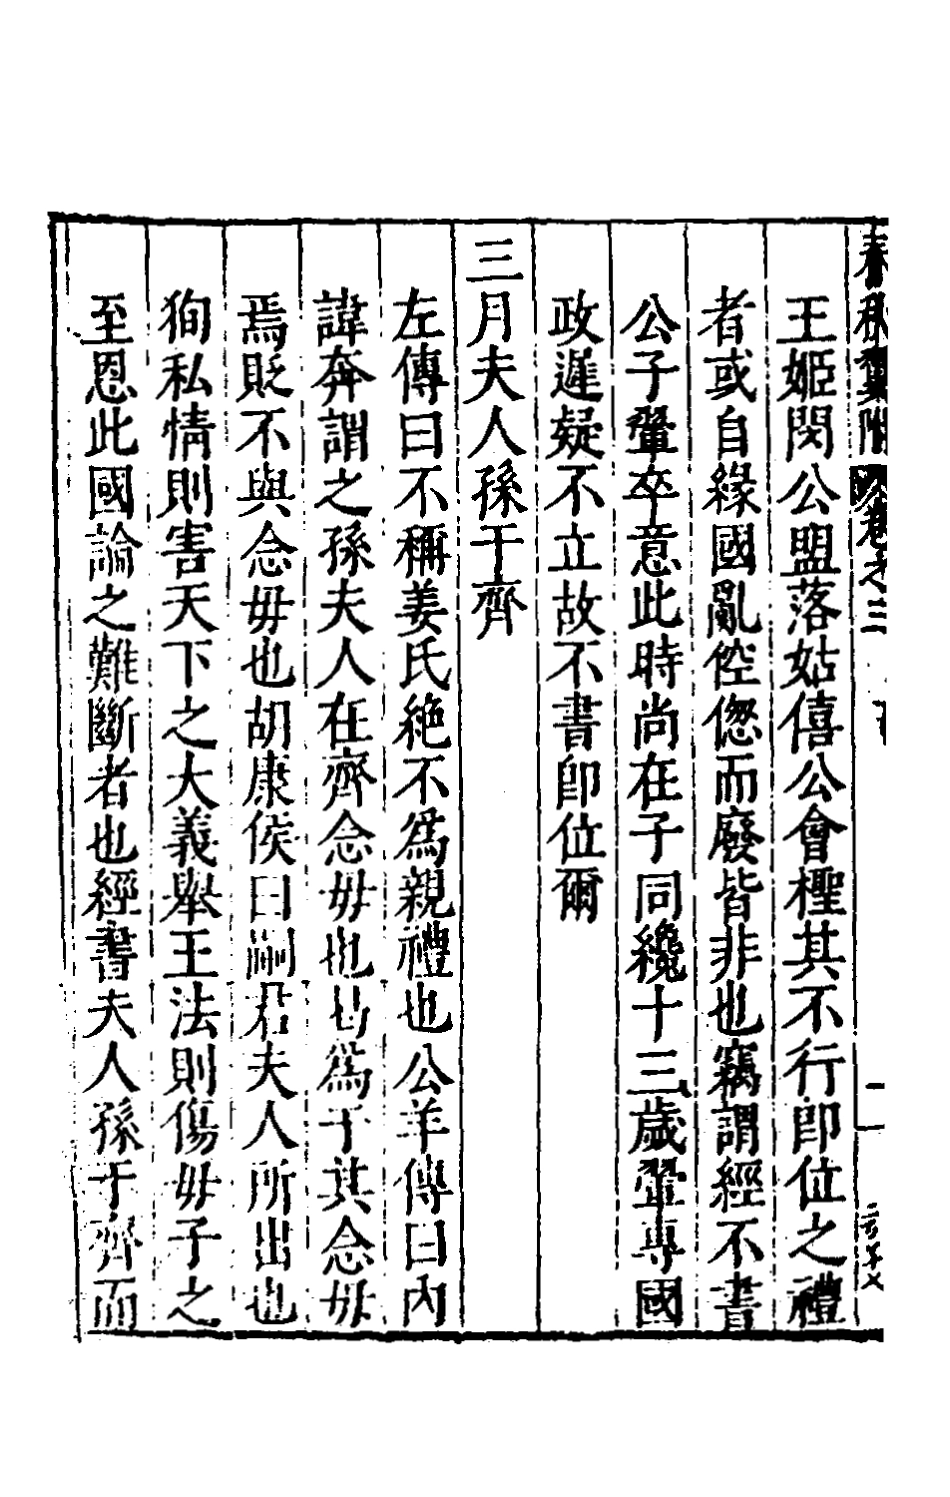 春秋集附 卷之三
王姬閔公盟落姑僖公會檉其不行即位之禮
者或自緣國亂倥偬而廢皆非也竊謂經不書
公子翬卒意此時尚在子同纔十三歲翬專國
政遲疑不立故不書即位爾
三月夫人孫于齊
左傳曰不稱姜氏絶不爲親禮也公羊傳曰內
諱奔謂之孫夫人在齊念毋也曷爲于其念毋
焉貶不與念毋也胡康侯曰嗣君夫人所出也
狥私情則害天下之大義舉王法則傷毋子之
至恩此國論之難斷者也經書夫人孫于齊而